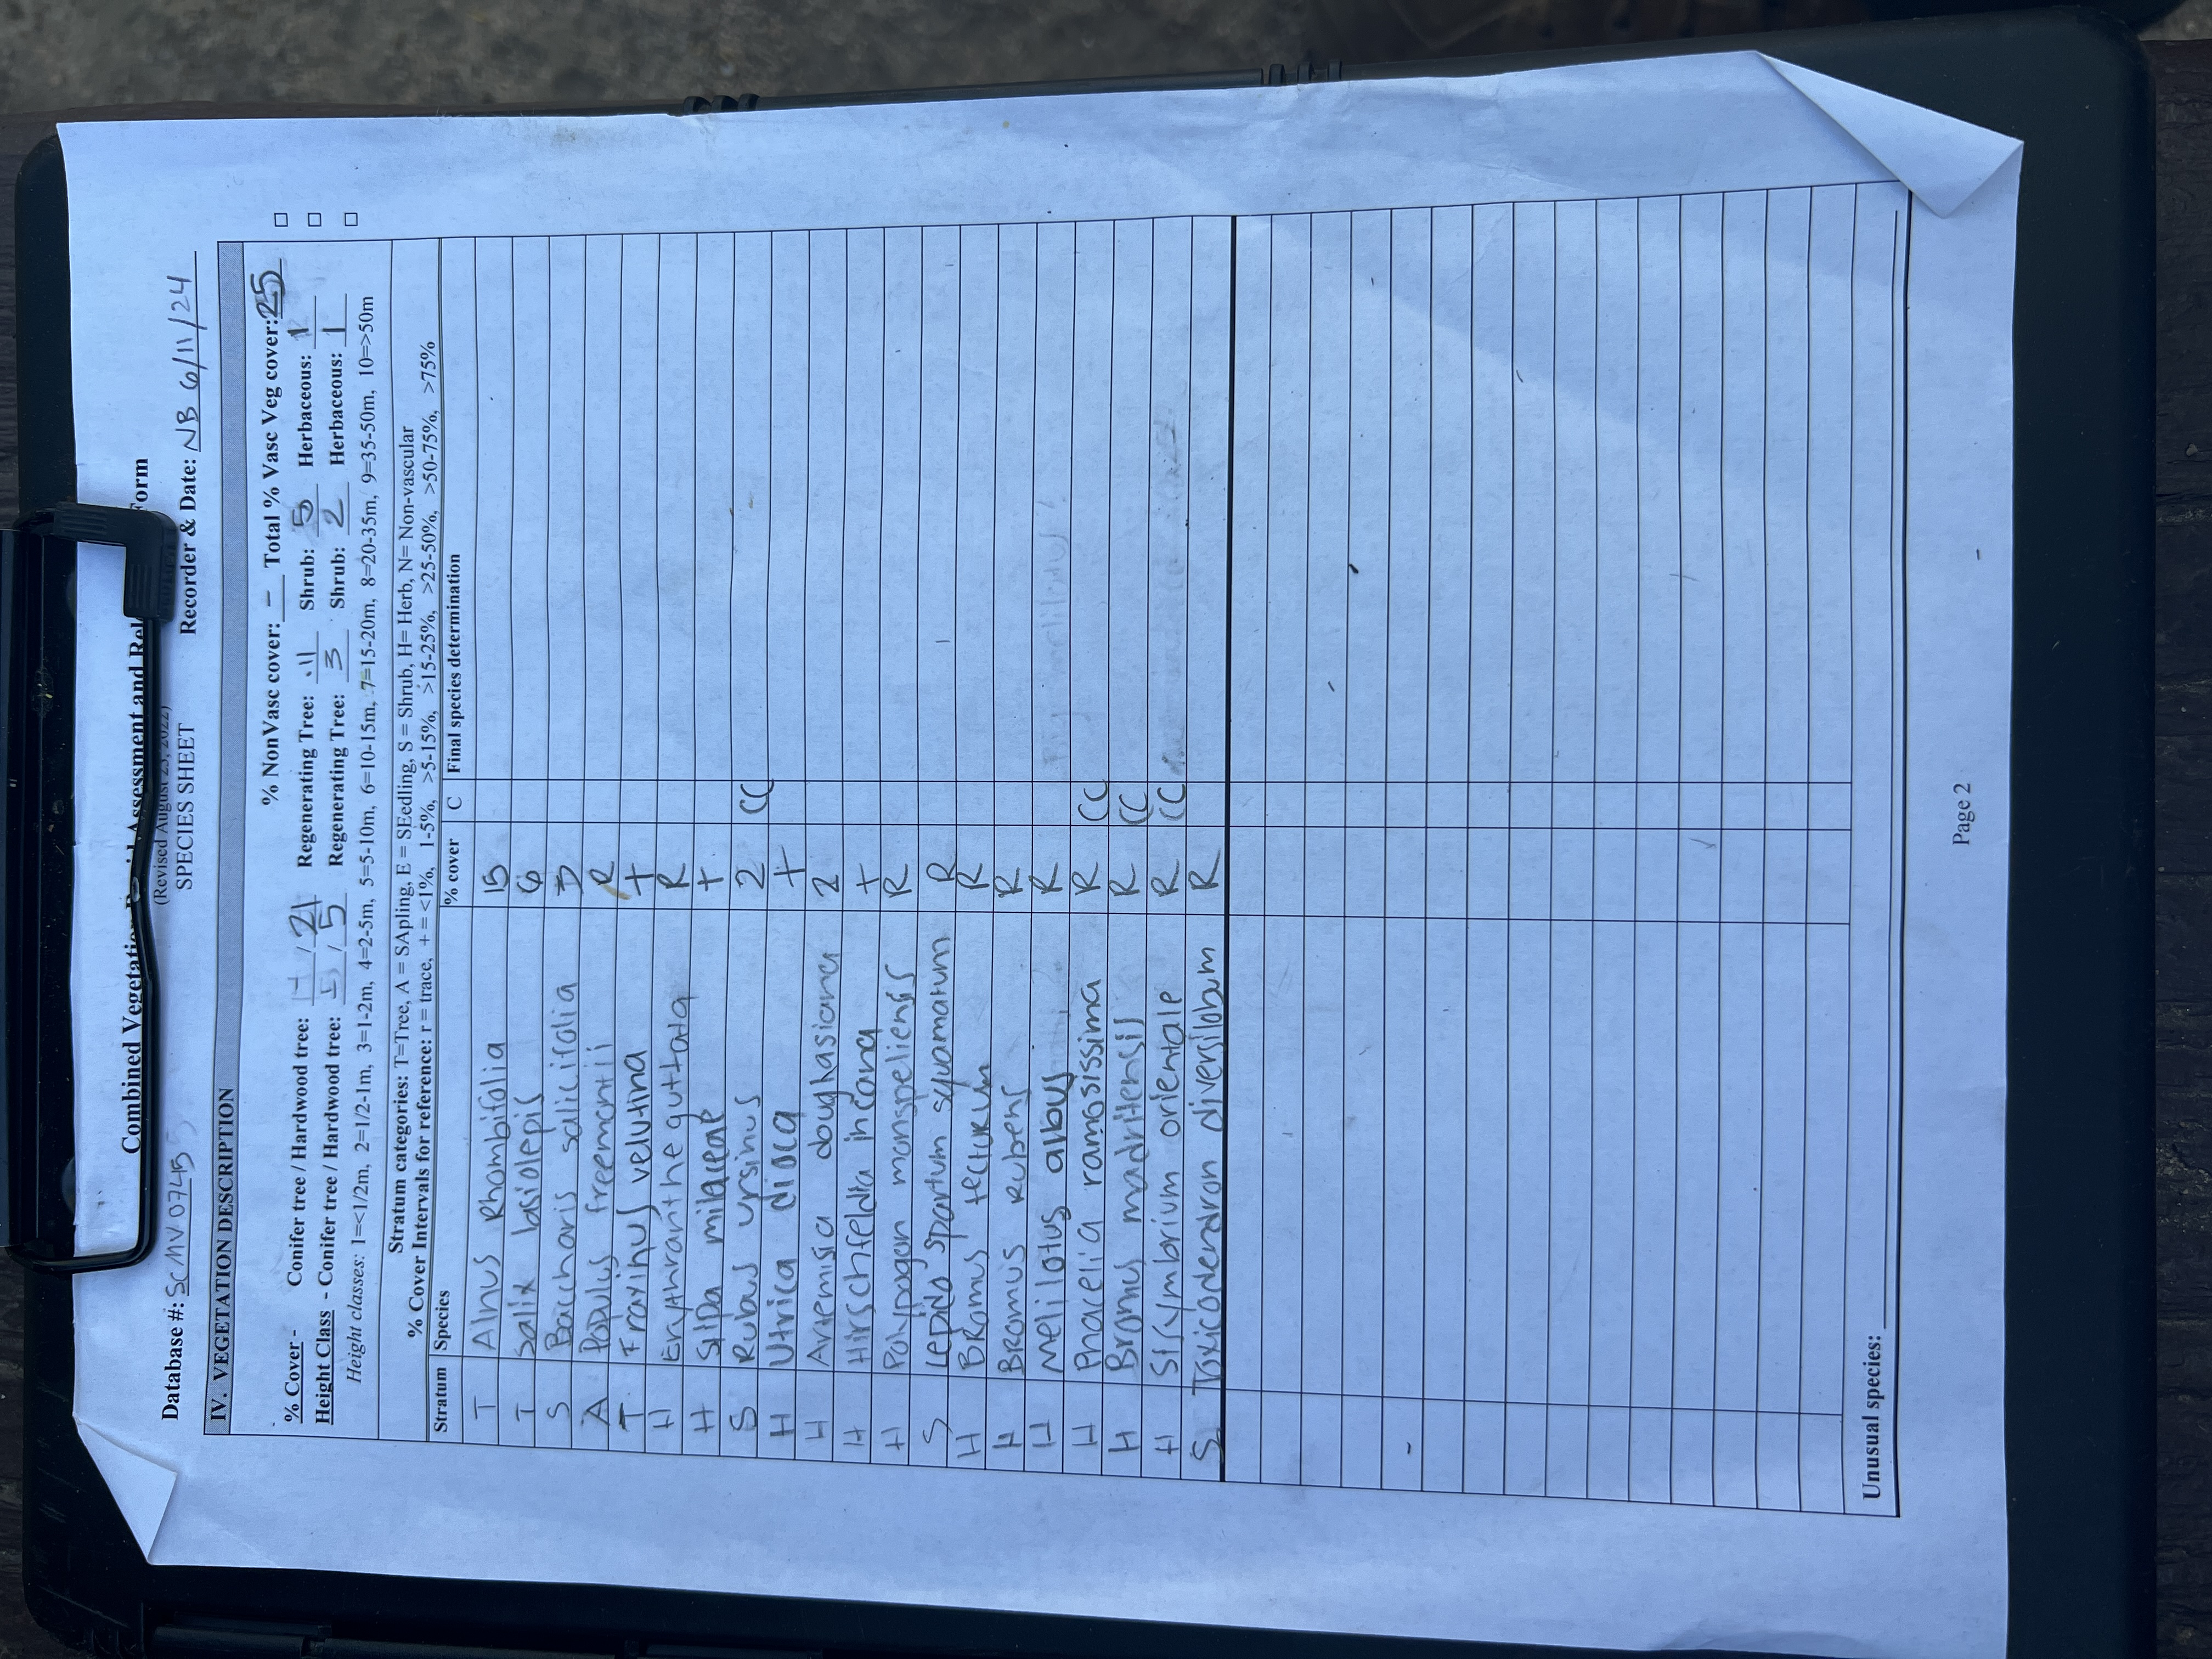 Combined Vegetation Rapid Assessment and Rel Form
(Revised August 23, 2022)
SPECIES SHEET
Database #: SCMV0745 Recorder & Date: NB 6/11/24
IV. VEGETATION DESCRIPTION
% NonVasc cover: - Total % Vasc Veg cover: 25
% Cover - Conifer tree / Hardwood tree: / 21 Regenerating Tree: Shrub: 5 Herbaceous: 1
Height Class - Conifer tree / Hardwood tree: / 5 Regenerating Tree: 3 Shrub: 2 Herbaceous: 1
Height classes: 1=<1/2m, 2=1/2-1m, 3=1-2m, 4=2-5m, 5=5-10m, 6=10-15m, 7=15-20m, 8=20-35m, 9=35-50m, 10=>50m
Stratum categories: T=Tree, A = SApling, E = SEedling, S = Shrub, H= Herb, N= Non-vascular
% Cover Intervals for reference: r = trace, + = <1%, 1-5%, >5-15%, >15-25%, >25-50%, >50-75%, >75%
Stratum Species % cover C Final species determination
T Alnus Rhombifolia 15
T Salix lasiolepis 6
S Baccharis salicifolia 5
A Populus freemontii R
T Fraxinus velutina +
H Erythranthe guttata R
H Stipa milaceae +
S Rubus ursinus 2 CC
H Utrica dioca +
H Artemisia douglkasiana 2
H Hirschfeldia incana +
H Polypogon monspeliensis R
S Lepido spartum squamatum R
H Bromus tectorum R
H Bromus rubens R
H Melilotus albus R
H Phacelia ramosissima R CC
H Bromus madritensis R CC
H Sisymbrium orientale R CC
S Toxicodendron diversilobum R
Unusual species:
Page 2